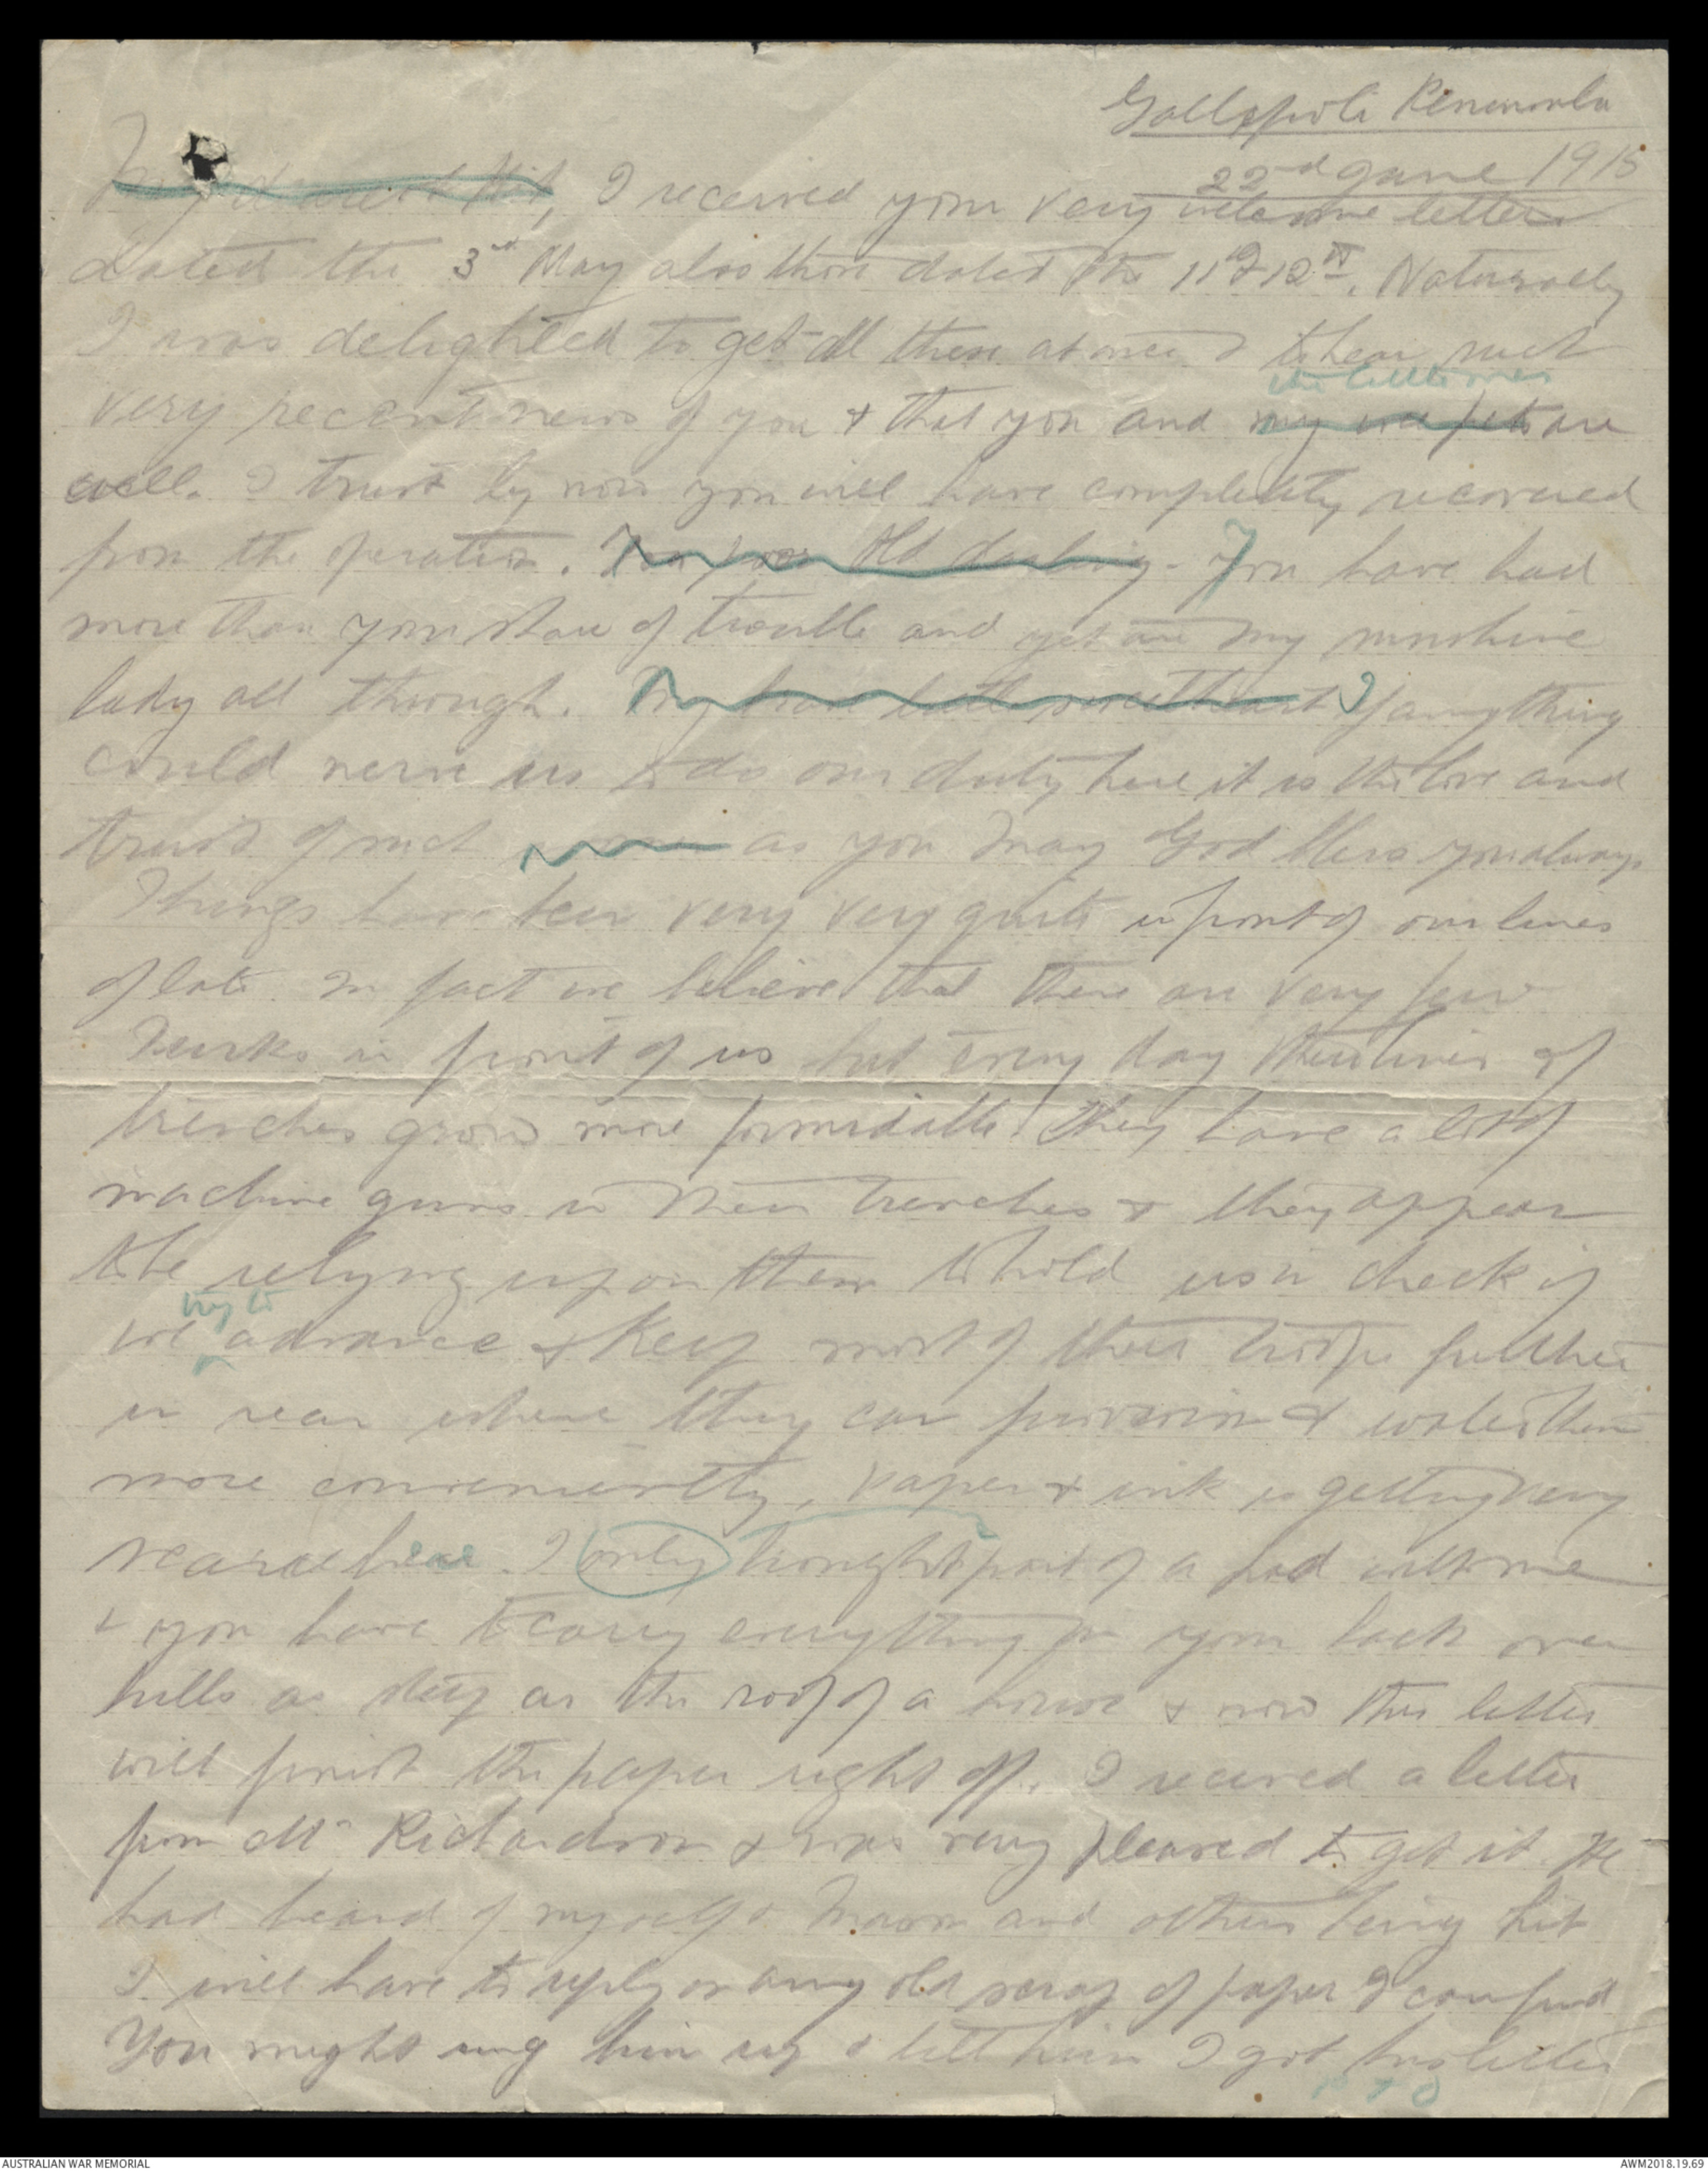 Gallipoli Peninsula
22nd June 1915
My dearest Kit, I received your very welcome letters
dated the 3rd May also those dated the 11th & 12th. Naturally
I was delighted to get all these at once & to hear such
the little ones
very recent news of you & that you and my wee pets are
well. I trust by now you will have completely recovered
from the operation. You poor old darling. You have had
more than your share of trouble and yet are my sunshine
lady all through. My brave little sweetheart If anything
could nerve us to do our duty here it is the love and
trust of such as you May God bless you always
Things have been very very quite in front of our lines
of late. In fact we believe that there are very few
Turks in front of us but every day their lines of
trenches grow more formidable. They have a lot of
machine guns in their trenches & they appear
to be relying upon them to hold us in check if
try to
we advance & keep most of their troops further
in rear where they can provision & water them
more conveniently. Paper & ink is getting very
scarce here. I only brought part of a pad with me
& you have to carry everything on your back over
hills as steep as the roof of a house & now this letter
will finish the paper right off. I received a letter
from Mr Richardson & was very pleased to get it. He
had heard of myself & Mason and others being hit
I will have to reply on any old scrap of paper I can find
You might ring him up & tell him I got his letter
P T O
AUSTRALIAN WAR MEMORIAL
AWM2018.19.69